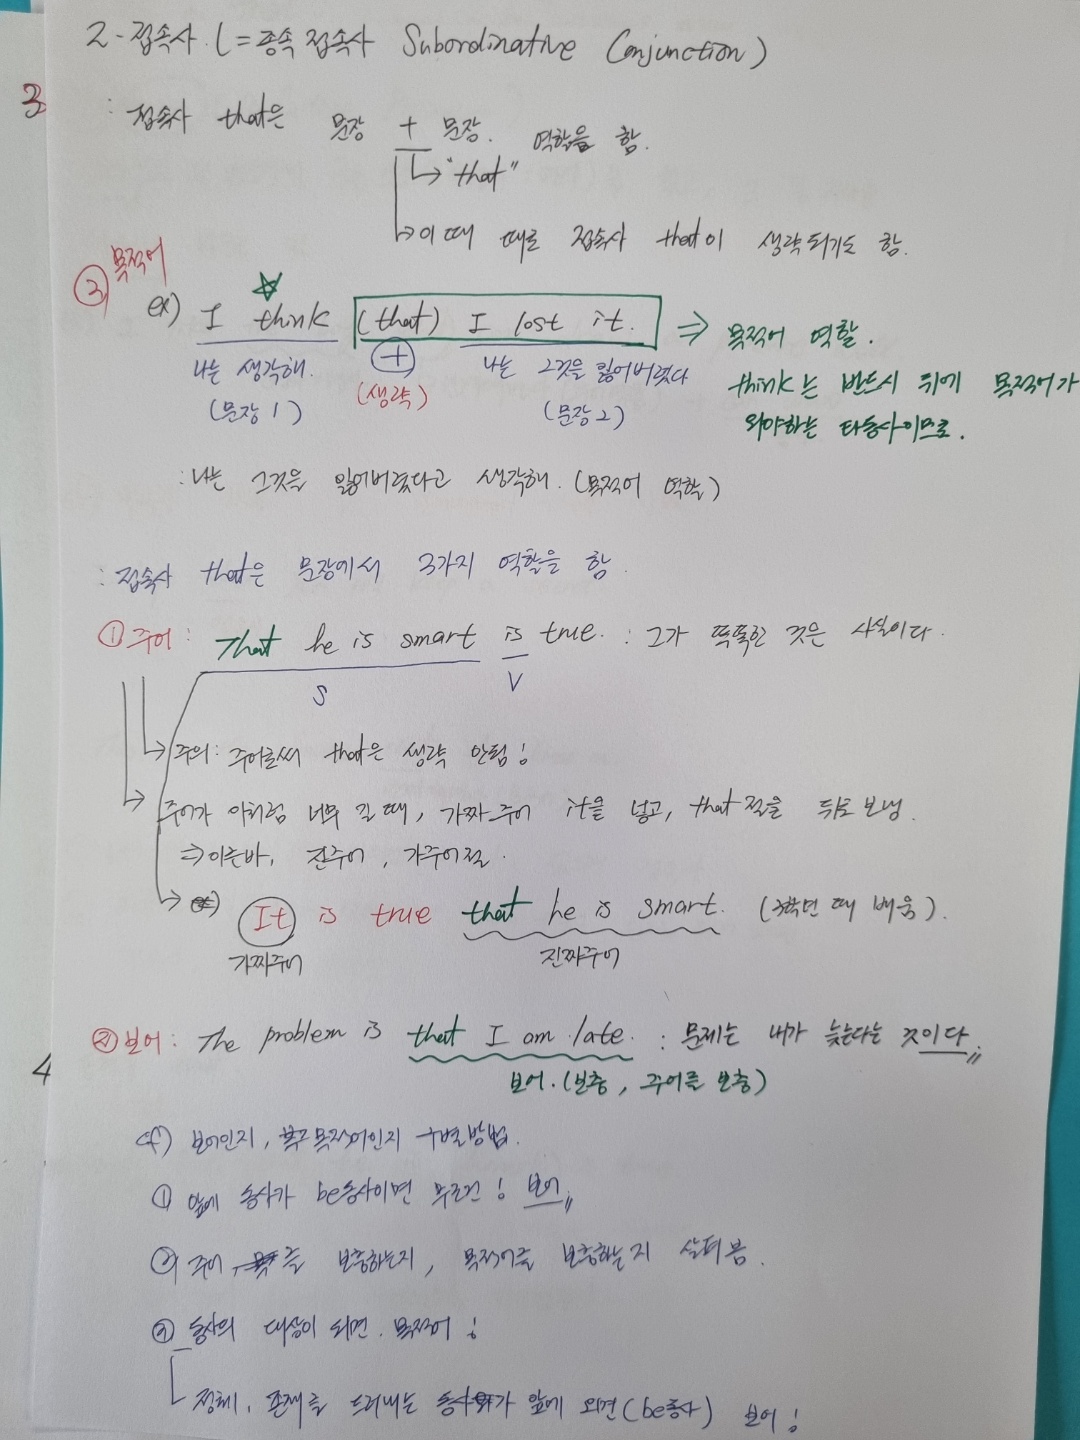 2-접속사. (= 종속 접속사 Subordinative Conjunction)
3
: 접속사 that은 문장 + 문장. 역할을 함.
↳ "that"
↳ 이 때 때로 접속사 that이 생략되기도 함.
③ 목적어
ex) I think (that) I lost it. ⇒ 목적어 역할.
나는 생각해. + 나는 그것을 잃어버렸다
(문장1) (생략) (문장2)
think는 반드시 뒤에 목적어가
와야하는 타동사이므로.
: 나는 그것을 잃어버렸다고 생각해. (목적어 역할)
: 접속사 that은 문장에서 3가지 역할을 함.
① 주어 : That he is smart is true. : 그가 똑똑한 것은 사실이다.
S V
→ 주의: 주어로써 that은 생략 안됨!
→ 주어가 이처럼 너무 길 때, 가짜 주어 it을 넣고, that절을 뒤로 보냄.
⇒ 이른바, 진주어, 가주어절.
→ ex) It is true that he is smart. (3학년 때 배움).
가짜주어 진짜주어
② 보어 : The problem is that I am late. : 문제는 내가 늦는다는 것이다.
4
보어. (보충, 주어를 보충)
cf) 보어인지, 목적어인지 구별방법.
① 앞에 동사가 be동사이면 무조건! 보어
② 주어를 보충하는지, 목적어를 보충하는지 살펴봄.
③ 동사의 대상이 되면. 목적어!
정체, 존재를 드러내는 동사가 앞에 오면 (be동사) 보어!